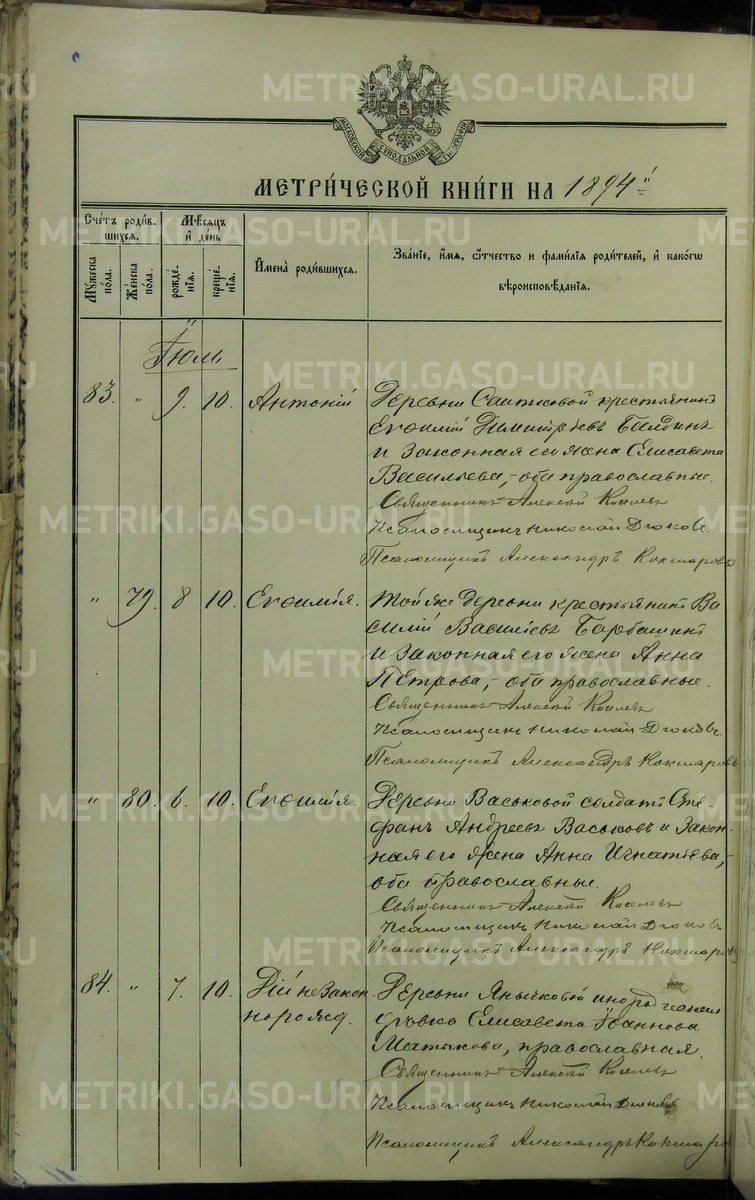 METRIKI.GASO-URAL.RU
МОСКОВСКОЙ СѴНОДАЛЬНОЙ ТИПОГРАФІИ
МЕТРИ́ЧЕСКОЙ КНИ́ГИ НА 1894 й
Сче́тъ роди́в-
шихся.
Мꙋ́жеска
по́ла.
Же́нска
по́ла.
Мѣ́сяцъ
и҆ де́нь
рожде́-
нїя.
креще́-
нїя.
И҆мена̀ роди́вшихся.
Зва́нїе, и҆́мя, ѻ҆́тчество и҆ фами́лїя роди́телей, и҆ како́гѡ
вѣроисповѣ́данїя.
Іюль
83. " 9. 10. Антоній
Деревни Саитковой крестьянинъ
Евѳимій Димитріевъ
и законная его жена Елисавета
Васильева, оба православные.
Священникъ Алексѣй Киселевъ
Псаломщикъ Николай Дюковъ.
Псаломщикъ Александръ Кокшаровъ
" 79. 8 10. Евѳимія.
Той же деревни крестьянинъ Ва
силій Васильевъ Барбашинъ
и законная его жена Анна
Петрова, оба православные.
Священникъ Алексѣй Киселевъ
Псаломщикъ Николай Дюковъ.
Псаломщикъ Александръ Кокшаровъ
" 80. 6. 10. Евѳимія.
Деревни Васьковой солдатъ Сте-
фанъ Андреевъ Васьковъ и закон-
ная его жена Анна Игнатіева,
оба православные.
Священникъ Алексѣй Киселевъ
Псаломщикъ Николай Дюковъ
Псаломщикъ Александръ Кокшаровъ
84. " 7. 10. Дій незакон
норожд.
Деревни Янычковой инород
дѣвка Елисавета Іоаннова
Матякова, православная.
Священникъ Алексѣй Киселевъ
Псаломщикъ Николай Дюковъ
Псаломщикъ Александръ Кокшаро